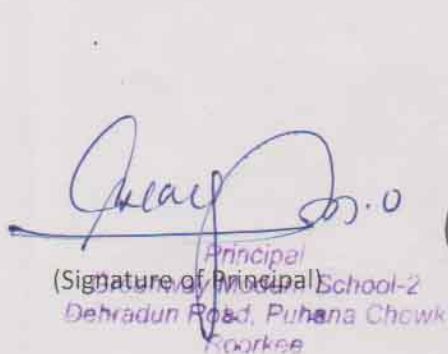 Principal
(Signature of Principal)
Greenway Modern School-2
Dehradun Road, Puhana Chowk
Roorkee